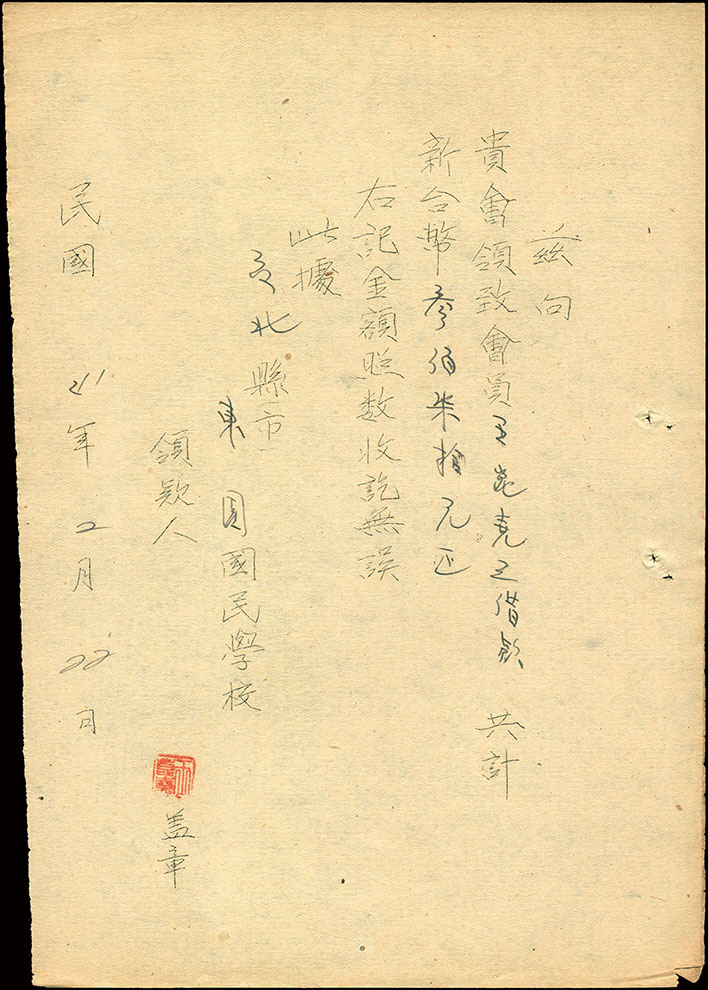 茲向
貴會領致會員王崑堯之借款 共計
新台幣參佰柒拾元正
右記金額照数收訖無誤
此據
台北縣市
東園國民學校
領款人 盖章
民國 41年 2月 22日